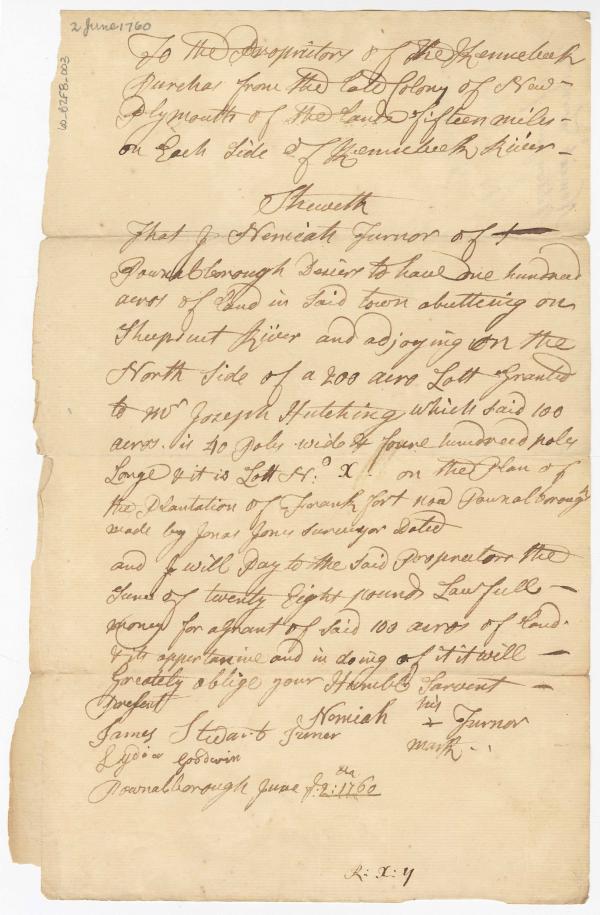 2 June 1760
60-B2F8-003
To the Proprietors of the Kennebeck
Purchas from the late Colony of New-
Plymouth of the Lands fifteen miles-
on Each Side of Kennebeck River-
Sheweth
That J Nemiah Turnor of
Pownalborough Desiers to have one hundred
acros of Land in Said town abutting on
Sheepscut River and adjoying on the
North Side of a 200 acro Lott Granted
to Mr Joseph Hutching which said 100
acros is 40 Poles wide & foure hundred poles
Longe & it is Lott No. X on the Plan of
the Plantation of Frankfort now Pownalborough
made by Jonas Jones Surveyor Dated
and J will Pay to the Said Proprietors the
Sume of twenty Eight pounds Lawfull-
money for a grant of Said 100 acros of Land
& its appertanine and in doing of it it will-
Greately oblige your Humble Sarvent-
Present
his
James Steduart Nemiah + Turnor
Turner mark
Lydia Goodwin
Pownalborough June 2th 1760
R: X: y